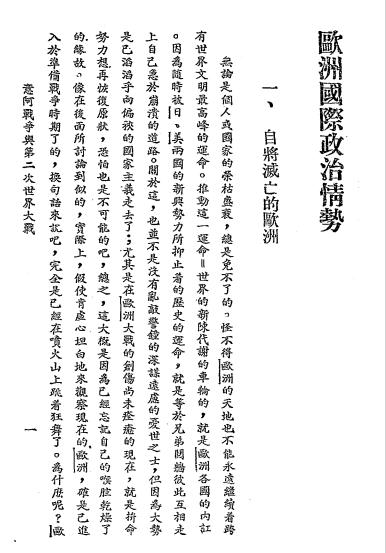 歐洲國際政治情勢
一、自將滅亡的歐洲
無論是個人或國家的榮枯盛衰，總是免不了的。怪不得歐洲的天地也不能永遠繼續着跨
有世界文明最高峰的運命。推動這一運命＝世界的新陳代謝的車輪的，就是歐洲各國的內訌
。因為隨時被日、美兩國的新興勢力所抑止着的歷史的運命，就是等於兄弟鬩牆彼此互相走
上自己急於崩潰的道路。關於這，也並不是沒有亂敲警鐘的深謀遠慮的憂世之士，但因為大勢
是已滔滔乎向偏狹的國家主義走去了；尤其是在歐洲大戰的創傷尚未痊癒的現在，就是拚命
努力想再恢復原狀，恐怕也是不可能的吧，總之，這大概是因為已經忘記自己的喉腔乾燥了
的緣故。像在後面所討論到似的，實際上，假使肯虛心坦白地來觀察現在的歐洲，確是已進
入於準備戰爭時期了的，換句話來說吧，完全是已經在噴火山上跳着狂舞了。為什麼呢？歐
意阿戰爭與第二次世界大戰
一